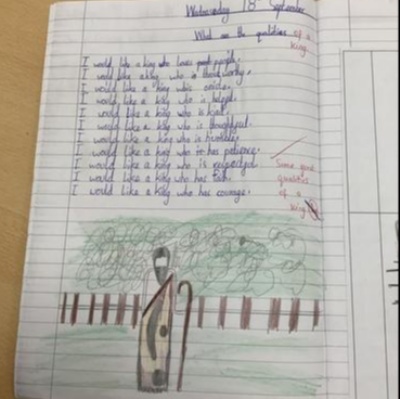 Wednesday 18th September
What are the qualities of a king.
I would like a king who loves people.
I would like a king who is trustworthy.
I would like a king who
I would like a king who is helpful.
I would like a king who is kind.
I would like a king who is thoughtful.
I would like a king who is humble.
I would like a king who has patience.
I would like a king who is respectful.
I would like a king who has
I would like a king who has courage.
Some good
qualities
of a
king